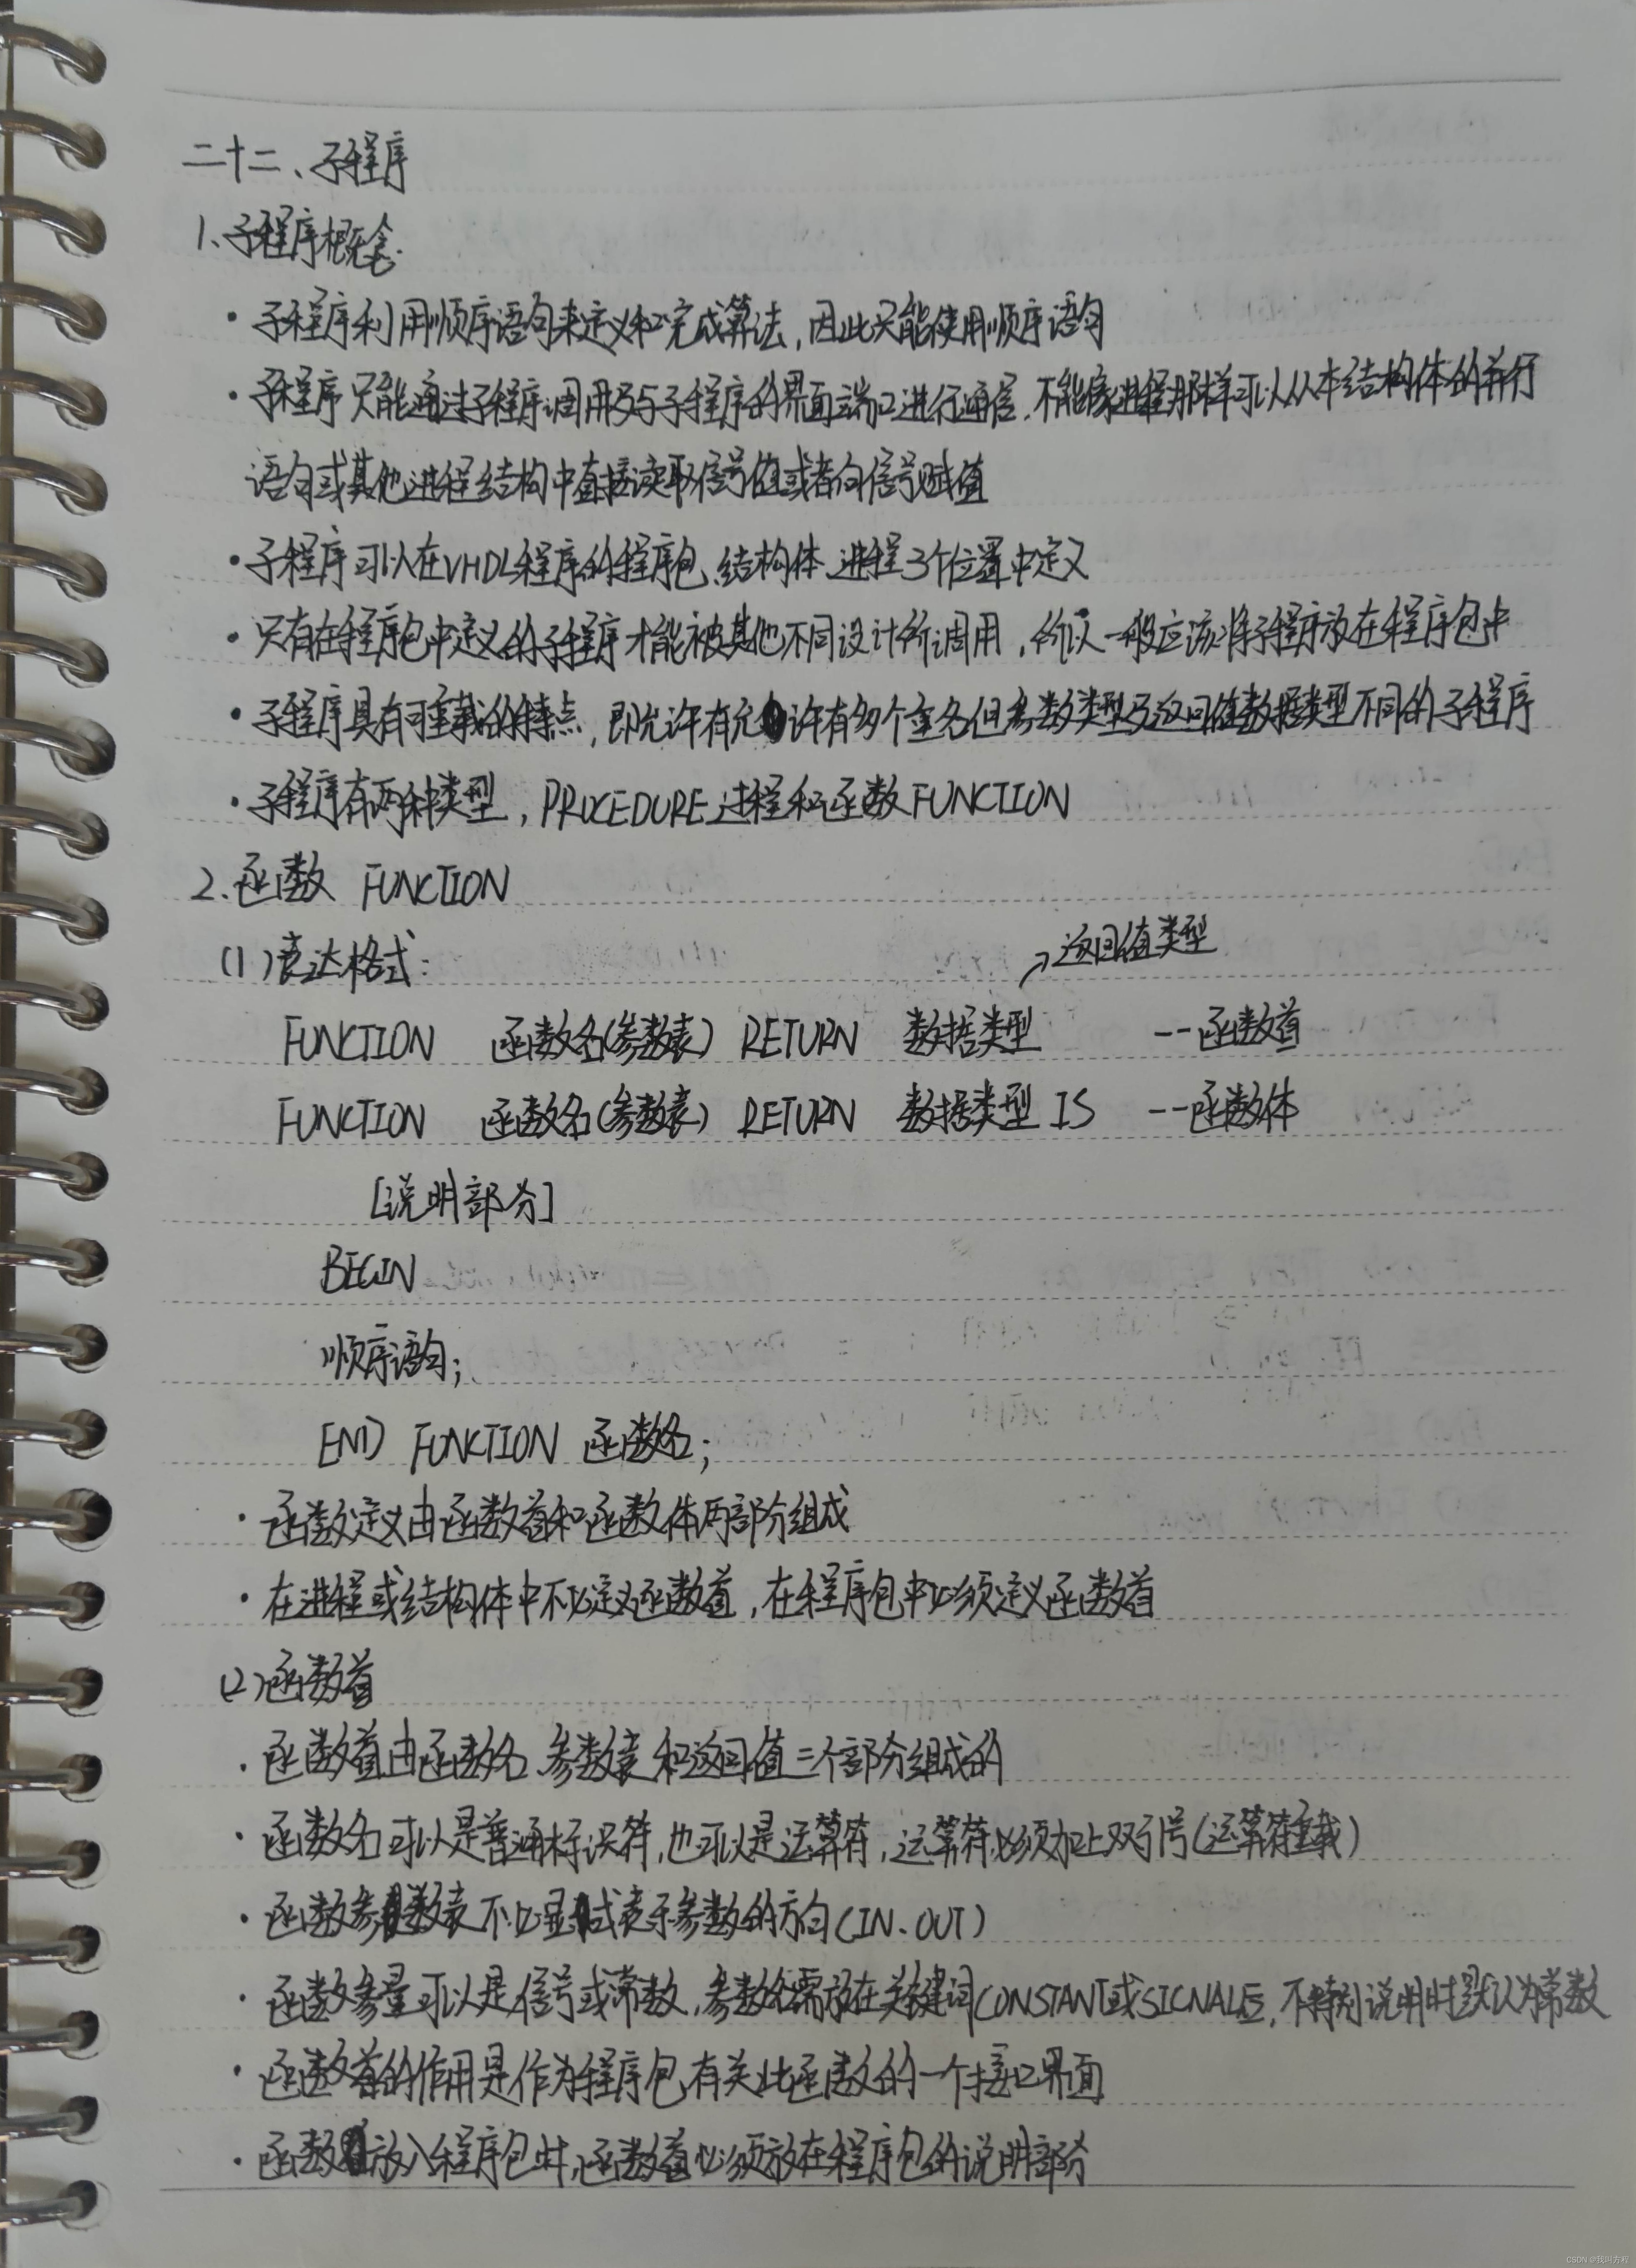 二十二、子程序
1、子程序概念
· 子程序利用顺序语句来定义和完成算法,因此只能使用顺序语句
· 子程序只能通过子程序调用及与子程序的界面端口进行通信.不能像进程那样可以从本结构体的并行
语句或其他进程结构中直接读取信号值或者向信号赋值
· 子程序可以在VHDL程序的程序包、结构体、进程3个位置中定义
· 只有在程序包中定义的子程序才能被其他不同设计所调用,所以一般应该将子程序放在程序包中
· 子程序具有可重载的特点,即允许有允许有多个重名但参数类型及返回值数据类型不同的子程序
· 子程序有两种类型,PROCEDURE过程和函数FUNCTION
2.函数 FUNCTION
(1)表达格式:
→返回值类型
FUNCTION 函数名(参数表) RETURN 数据类型 --函数首
FUNCTION 函数名(参数表) RETURN 数据类型 IS --函数体
[说明部分]
BEGIN
顺序语句;
END FUNCTION 函数名;
· 函数定义由函数首和函数体两部分组成
· 在进程或结构体中不必定义函数首,在程序包中必须定义函数首
(2)函数首
· 函数首由函数名、参数表和返回值三个部分组成的
· 函数名可以是普通标识符,也可以是运算符,运算符必须加上双引号(运算符重载)
· 函数参数表不必显式表示参数的方向(IN、OUT)
· 函数参量可以是信号或常数,参数名需放在关键词CONSTANT或SIGNAL后,不特别说明时默认为常数
· 函数首的作用是作为程序包有关此函数的一个接口界面
· 函数放入程序包时,函数首必须放在程序包的说明部分
CSDN @找叫方程